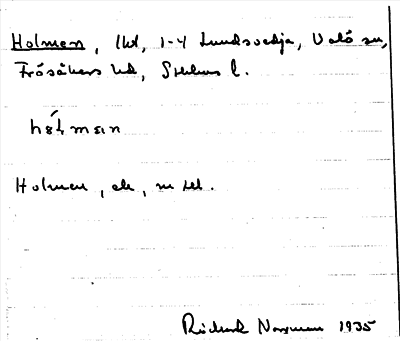 Holmen, lht, 1-4 Lundsvedja, Valö sn,
Frösåkers hd, Sthlms l.
hólmɘn
Holmen, ale, m tet.
Rickard Norman 1935